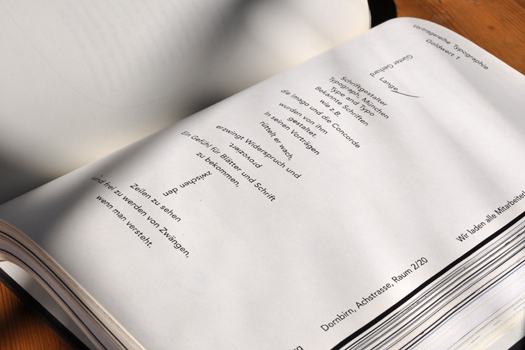 Vortragsreihe Typographie
Goldwert 1
Günter Gerhard
Lange
Schriftgestalter
Typograph, München
Type and Typo
Bekannte Schriften
wie z.B.
die Imago und die Concorde
wurden von ihm
gestaltet.
In seinen Vorträgen
rüttelt er wach,
erzwingt Widerspruch und
provoziert
Ein Gefühl für Blätter und Schrift
zu bekommen,
zwischen den
Zeilen zu sehen
und frei zu werden von Zwängen,
wenn man versteht.
Dornbirn, Achstrasse, Raum 2/20
Wir laden alle Mitarbeiter